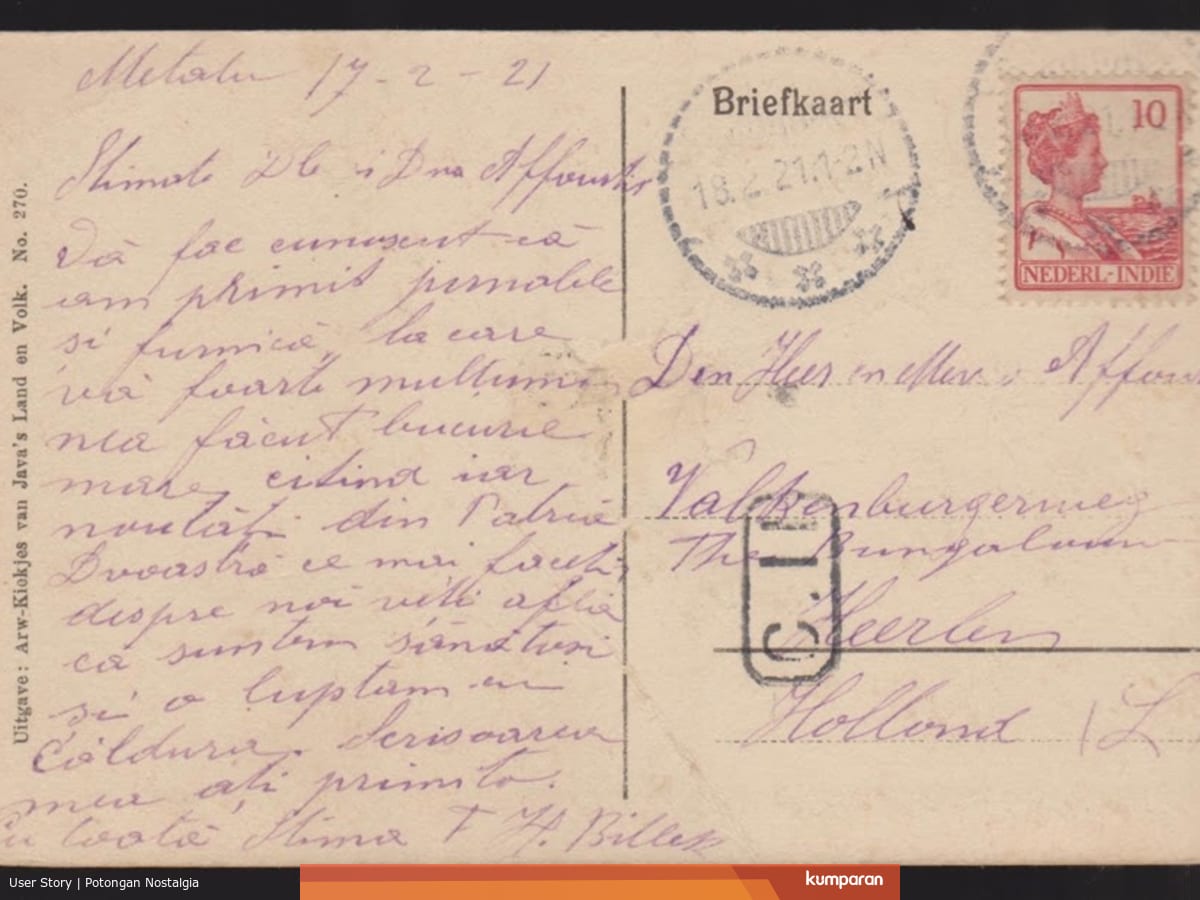 17-2-21
Stimate Dle și Dna
Vă fac cunoscut că
am primit jurnalele
si furnică, la care
vă foarte multumim
nea făcut bucurie
mare, citind iar
noutăți din Patria
Dvoastră ce mai faceti,
despre noi veti afla
că suntem sănătosi
și o luptăm cu
Căldura. Scrisoarea
mea ați primito.
Cu toată Stima
Uitgave: Arw-Kiokjes van Java's Land en Volk. No. 270.
Briefkaart
18.2.21.1-2N
10
NEDERL.-INDIE
Den Heer en Mev.
Valkenburgerweg
The Bungalow
Heerlen
Holland (L
User Story | Potongan Nostalgia
kumparan